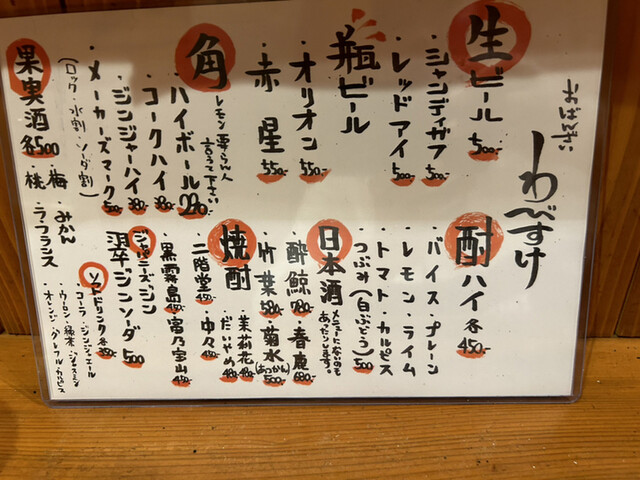 おばんざい
わびすけ
生ビール 500-
・シャンディガフ 500-
・レッドアイ 500-
瓶ビール
・オリオン 550-
・赤星 550-
角ハイボール 290-
レモン要らない人
言うて下さい
・コークハイ 390-
・ジンジャーハイ 390-
・メーカーズマーク 500-
(ロック・水割・ソーダ割)
果実酒 各500
・梅・みかん
・桃・ラフランス
酎ハイ 各450-
・バイス・プレーン
・レモン・ライム
・トマト・カルピス
・つぶみ(白ぶどう) 500
日本酒
メニューにないのも
あったりします。
・酔鯨 780-・春鹿 680-
・竹葉 580-・菊水(あつかん) 500-
焼酎
・茉莉花 480-
・だいやめ 480-
・二階堂 450-・中々 450-
・黒霧島 450-・富乃宝山 450-
ジャパニーズジン
翠ジンソーダ 500
ソフトドリンク 各350
・コーラ・ジンジャエール
・ウーロン・緑茶・ジャスミン
・オレンジ・グレフル・カルピス